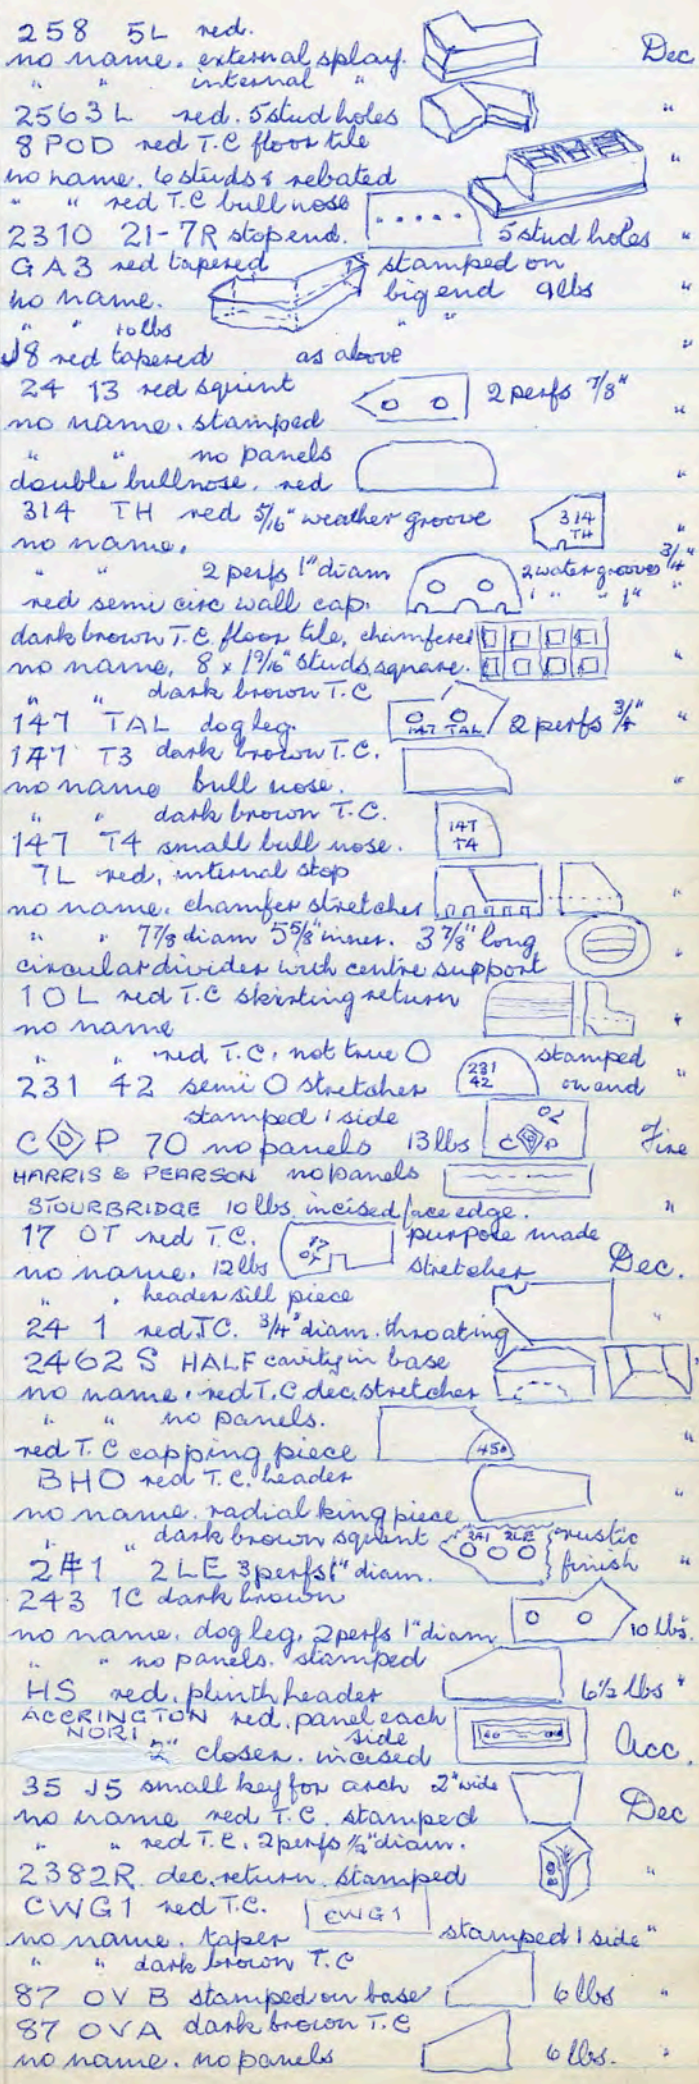 258 5L red.
no name. external splay. Dec
" " internal "
2563L red. 5 stud holes "
8 POD red T.C floor tile
no name. 6 studs & rebated "
" " red T.C bull nose
2310 21-7R stop end. 5 stud holes "
GA3 red tapered stamped on
no name. big end 9lbs "
" " 10 lbs " "
J8 red tapered as above "
24 13 red squint 2 perfs 7/8"
no name. stamped "
" " no panels
double bullnose. red "
314 TH red 5/16" weather groove 314 TH
no name. "
" " 2 perfs 1" diam 2 water grooves 3/4"
red semi circ wall cap. 1 " " 1" "
dark brown T.C. floor tile, chamfered
no name, 8 x 1 9/16" studs square. "
" " dark brown T.C
147 TAL dog leg. 147 TAL 2 perfs 3/4" "
147 T3 dark brown T.C.
no name bull nose. "
" " dark brown T.C.
147 T4 small bull nose. 147 T4
7L red, internal stop
no name. chamfer stretcher "
" " 7 7/8 diam 5 5/8" inner. 3 7/8" long
circular divider with centre support "
10L red T.C skirting return
no name "
" " red T.C. not true O stamped
231 42 semi O stretcher 231 42 on end "
stamped 1 side 70
C D P 70 no panels 13 lbs C D P Fire
HARRIS & PEARSON no panels
STOURBRIDGE 10 lbs. incised face edge. "
17 OT red T.C. 17 OT purpose made
no name. 12 lbs stretcher Dec.
" " header sill piece
24 1 red T.C. 3/4" diam. throating "
2462S HALF cavity in base
no name. red T.C. dec. stretcher "
" " no panels.
red T.C capping piece 450 "
BHO red T.C. header
no name. radial king piece "
" " dark brown squint 241 2LE rustic
241 2LE 3 perfs 1" diam. finish "
243 1C dark brown
no name. dog leg. 2 perfs 1" diam 10 lbs.
" " no panels. stamped
HS red. plinth header 6 1/2 lbs "
ACCRINGTON red. panel each
NORI side
2" closer. incised Acc.
35 J5 small key for arch 2" wide
no name red T.C. stamped Dec
" " red T.C. 2 perfs 1/2" diam.
2382R. dec. return. stamped "
CWG1 red T.C. CWG1
no name. taper stamped 1 side "
" " dark brown T.C
87 OV B stamped on base 6 lbs "
87 OVA dark brown T.C
no name. no panels 6 lbs. "